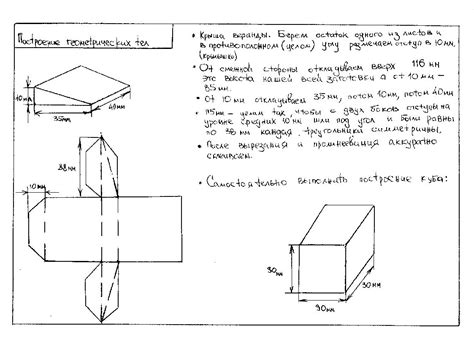 Построение геометрических тел
• Крыша веранды. Берем остаток одного из листов и
в противоположном (целом) углу размечаем отступ в 10мм.
(крышвю)
• От смежной стороны откладываем вверх 116 мм
это высота нашей всей заготовки а от 10мм –
85мм.
• От 10мм откладываем 35мм, потом 10мм, потом 40мм
• 115мм – делим так, чтобы с двух боков отступы на
уровне средних 10мм шли под угол и были равны
по 38мм каждая, треугольники симметричны.
• После вырезания и проклеивания аккуратно
склеиваем.
• Самостоятельно выполнить построение куба:
10мм
40мм
35мм
38мм
10мм
30мм
30мм
30мм